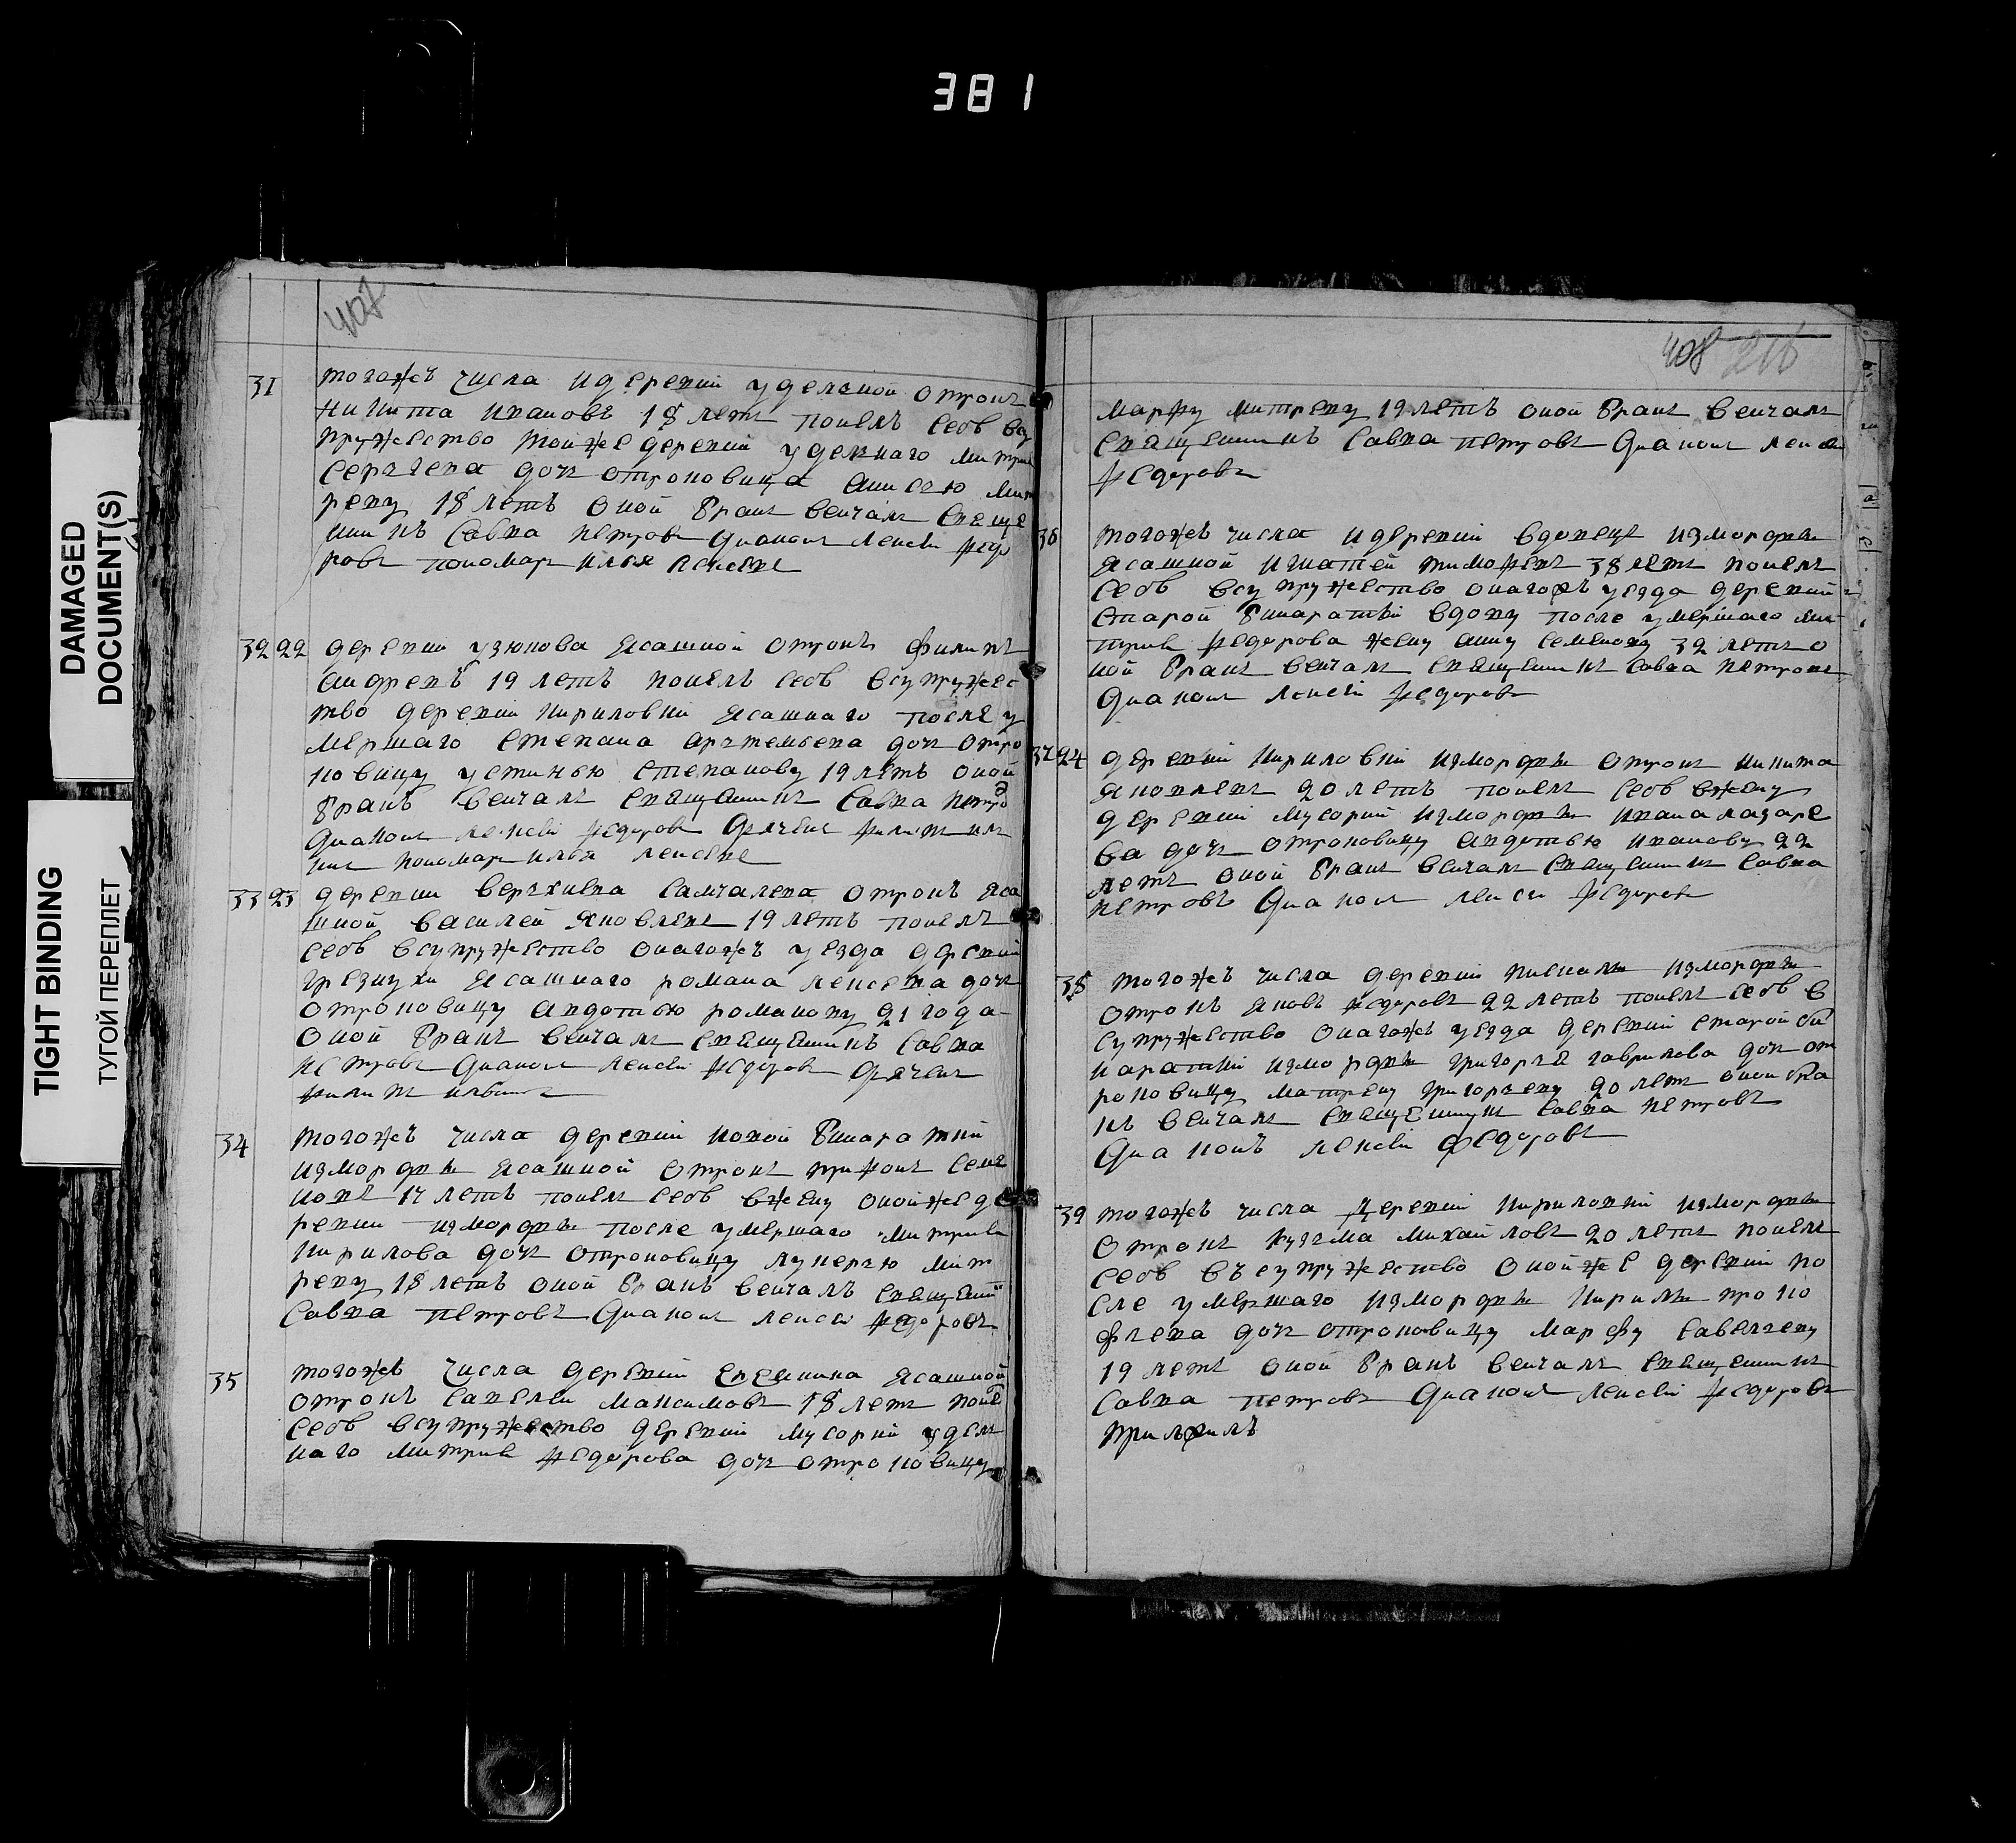 381
DAMAGED
DOCUMENT(S)
TIGHT BINDING
ТУГОЙ ПЕРЕПЛЕТ
407
31 тогожъ числа и деревни удельной отрокъ
Никита Ивановъ 18 летъ понелъ себѣ всу
пружество тойже деревни уделнаго Митри
Сергеева доч отроковица Мит
реву 18 летъ оной бракъ венчалъ свяще
нникъ Савва Петровъ диаконъ Лексеи Федо
ровъ пономарь Илья Лексеев
32 22 деревни Узюкова ясашной отрокъ Филипъ
Андреевъ 19 летъ понелъ себѣ всупружес
тво деревни Кириловки ясашнаго после у
мершаго Степана Арътемьева доч отро
ковицу Устинью Степанову 19 летъ оной
бракъ венчалъ священникъ Савва Петро
диаконъ Лексеи Федоровъ дячекъ Филип
пономарь Илья Лексеев
33 23 деревни отрокъ яса
шной Василей Яковлевъ 19 летъ понелъ
себѣ всупружество онагожъ уезда деревни
Грезнухи ясашнаго Романа Лексеева доч
отроковицу Авдотью Романову 21 года
оной бракъ венчалъ священникъ Савва
Петровъ диаконъ Лексеи Федоровъ дячекъ
Филип
34 тогожъ числа деревни новой Бинаратки
изморфы ясашной отрокъ Трифонъ Семе
новъ 17 летъ понелъ себѣ вжену онойже де
ревни изморфы после умершаго Митрия
Кирилова доч отроковицу Лукерью Мит
реву 18 летъ оной бракъ венчалъ священи
Савва Петровъ диаконъ Лексеи Федоровъ
35 тогожъ числа деревни ясашной
отрокъ Савелеи Максимовъ 18 летъ поне
себѣ всупружество деревни Мусорки удел
наго Митрия Федорова доч отроковицу
408 216
Марфу Митреву 19 летъ оной бракъ венчалъ
священникъ Савва Петровъ диаконъ Лексеи
Федоровъ
36 тогожъ числа и деревни вдовецъ изморфы
ясашной Игнатей Тимофеевъ 38 летъ понелъ
себѣ всупружество онагожъ уезда деревни
старой Бинаратки вдову после умершаго Ми
трия Федорова жену Анну Семенову 32 летъ о
ной бракъ венчалъ священникъ Савва Петровъ
диаконъ Лексеи Федоровъ
37 24 деревни Кириловки изморфы отрокъ Никита
Яковлевъ 20 летъ понелъ себѣ вжену
деревни Мусорки изморфы Ивана Лазаре
ва доч отроковицу Авдотью Иванову 22
летъ оной бракъ венчалъ священникъ Савва
Петровъ диаконъ Лексеи Федоровъ
38 тогожъ числа деревни Пискалы изморфы
отрокъ Яковъ Федоровъ 22 летъ понелъ себѣ в
супружество онагожъ уезда деревни старой би
наратки изморфы Григорья Гаврилова доч от
роковицу Матрену Григорьеву 20 летъ оной бра
къ венчалъ священникъ Савва Петровъ
диаконъ Лексеи Федоровъ
39 тогожъ числа деревни Кириловки изморфы
отрокъ Кузьма Михайловъ 20 летъ понелъ
себѣ въсупружество онойже деревни по
сле умершаго изморфы Кирилы Проко
фьева доч отроковицу Марфу Савельеву
19 летъ оной бракъ венчалъ священникъ
Савва Петровъ диаконъ Лексеи Федоровъ